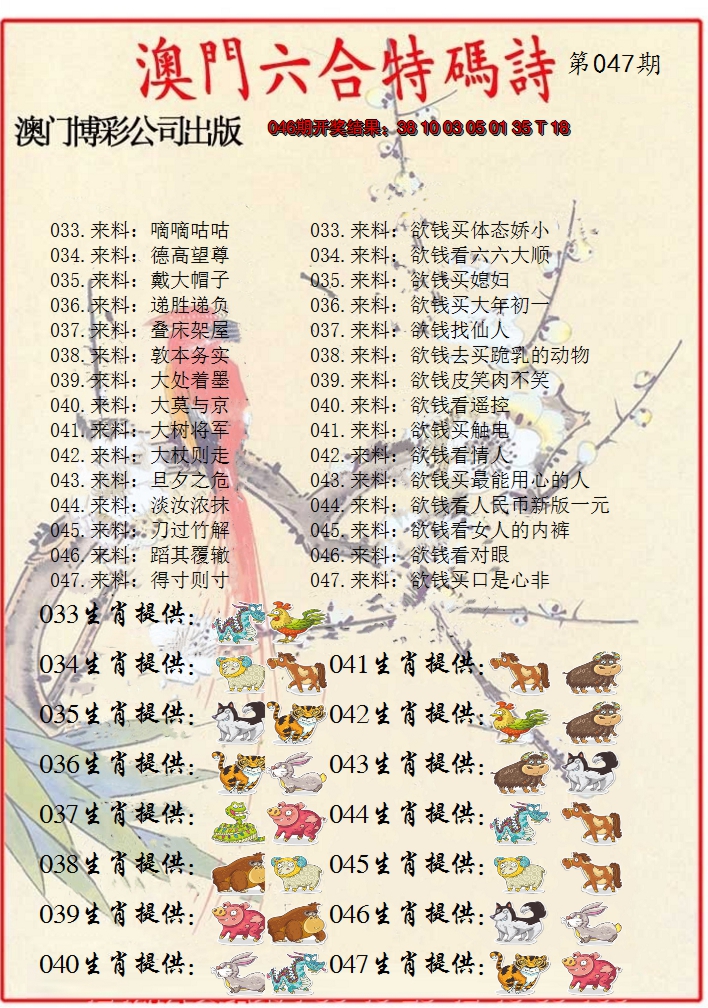 澳門六合特碼詩 第047期
澳门博彩公司出版 046期开奖结果：38 10 03 05 01 35 T 18
033.来料：嘀嘀咕咕 033.来料：欲钱买体态娇小
034.来料：德高望尊 034.来料：欲钱看六六大顺
035.来料：戴大帽子 035.来料：欲钱买媳妇
036.来料：递胜递负 036.来料：欲钱买大年初一
037.来料：叠床架屋 037.来料：欲钱找仙人
038.来料：敦本务实 038.来料：欲钱去买跪乳的动物
039.来料：大处着墨 039.来料：欲钱皮笑肉不笑
040.来料：大莫与京 040.来料：欲钱看遥控
041.来料：大树将军 041.来料：欲钱买触电
042.来料：大杖则走 042.来料：欲钱看情人
043.来料：旦夕之危 043.来料：欲钱买最能用心的人
044.来料：淡汝浓抹 044.来料：欲钱看人民币新版一元
045.来料：刃过竹解 045.来料：欲钱看女人的内裤
046.来料：蹈其覆辙 046.来料：欲钱看对眼
047.来料：得寸则寸 047.来料：欲钱买口是心非
033生肖提供：
034生肖提供： 041生肖提供：
035生肖提供： 042生肖提供：
036生肖提供： 043生肖提供：
037生肖提供： 044生肖提供：
038生肖提供： 045生肖提供：
039生肖提供： 046生肖提供：
040生肖提供： 047生肖提供：